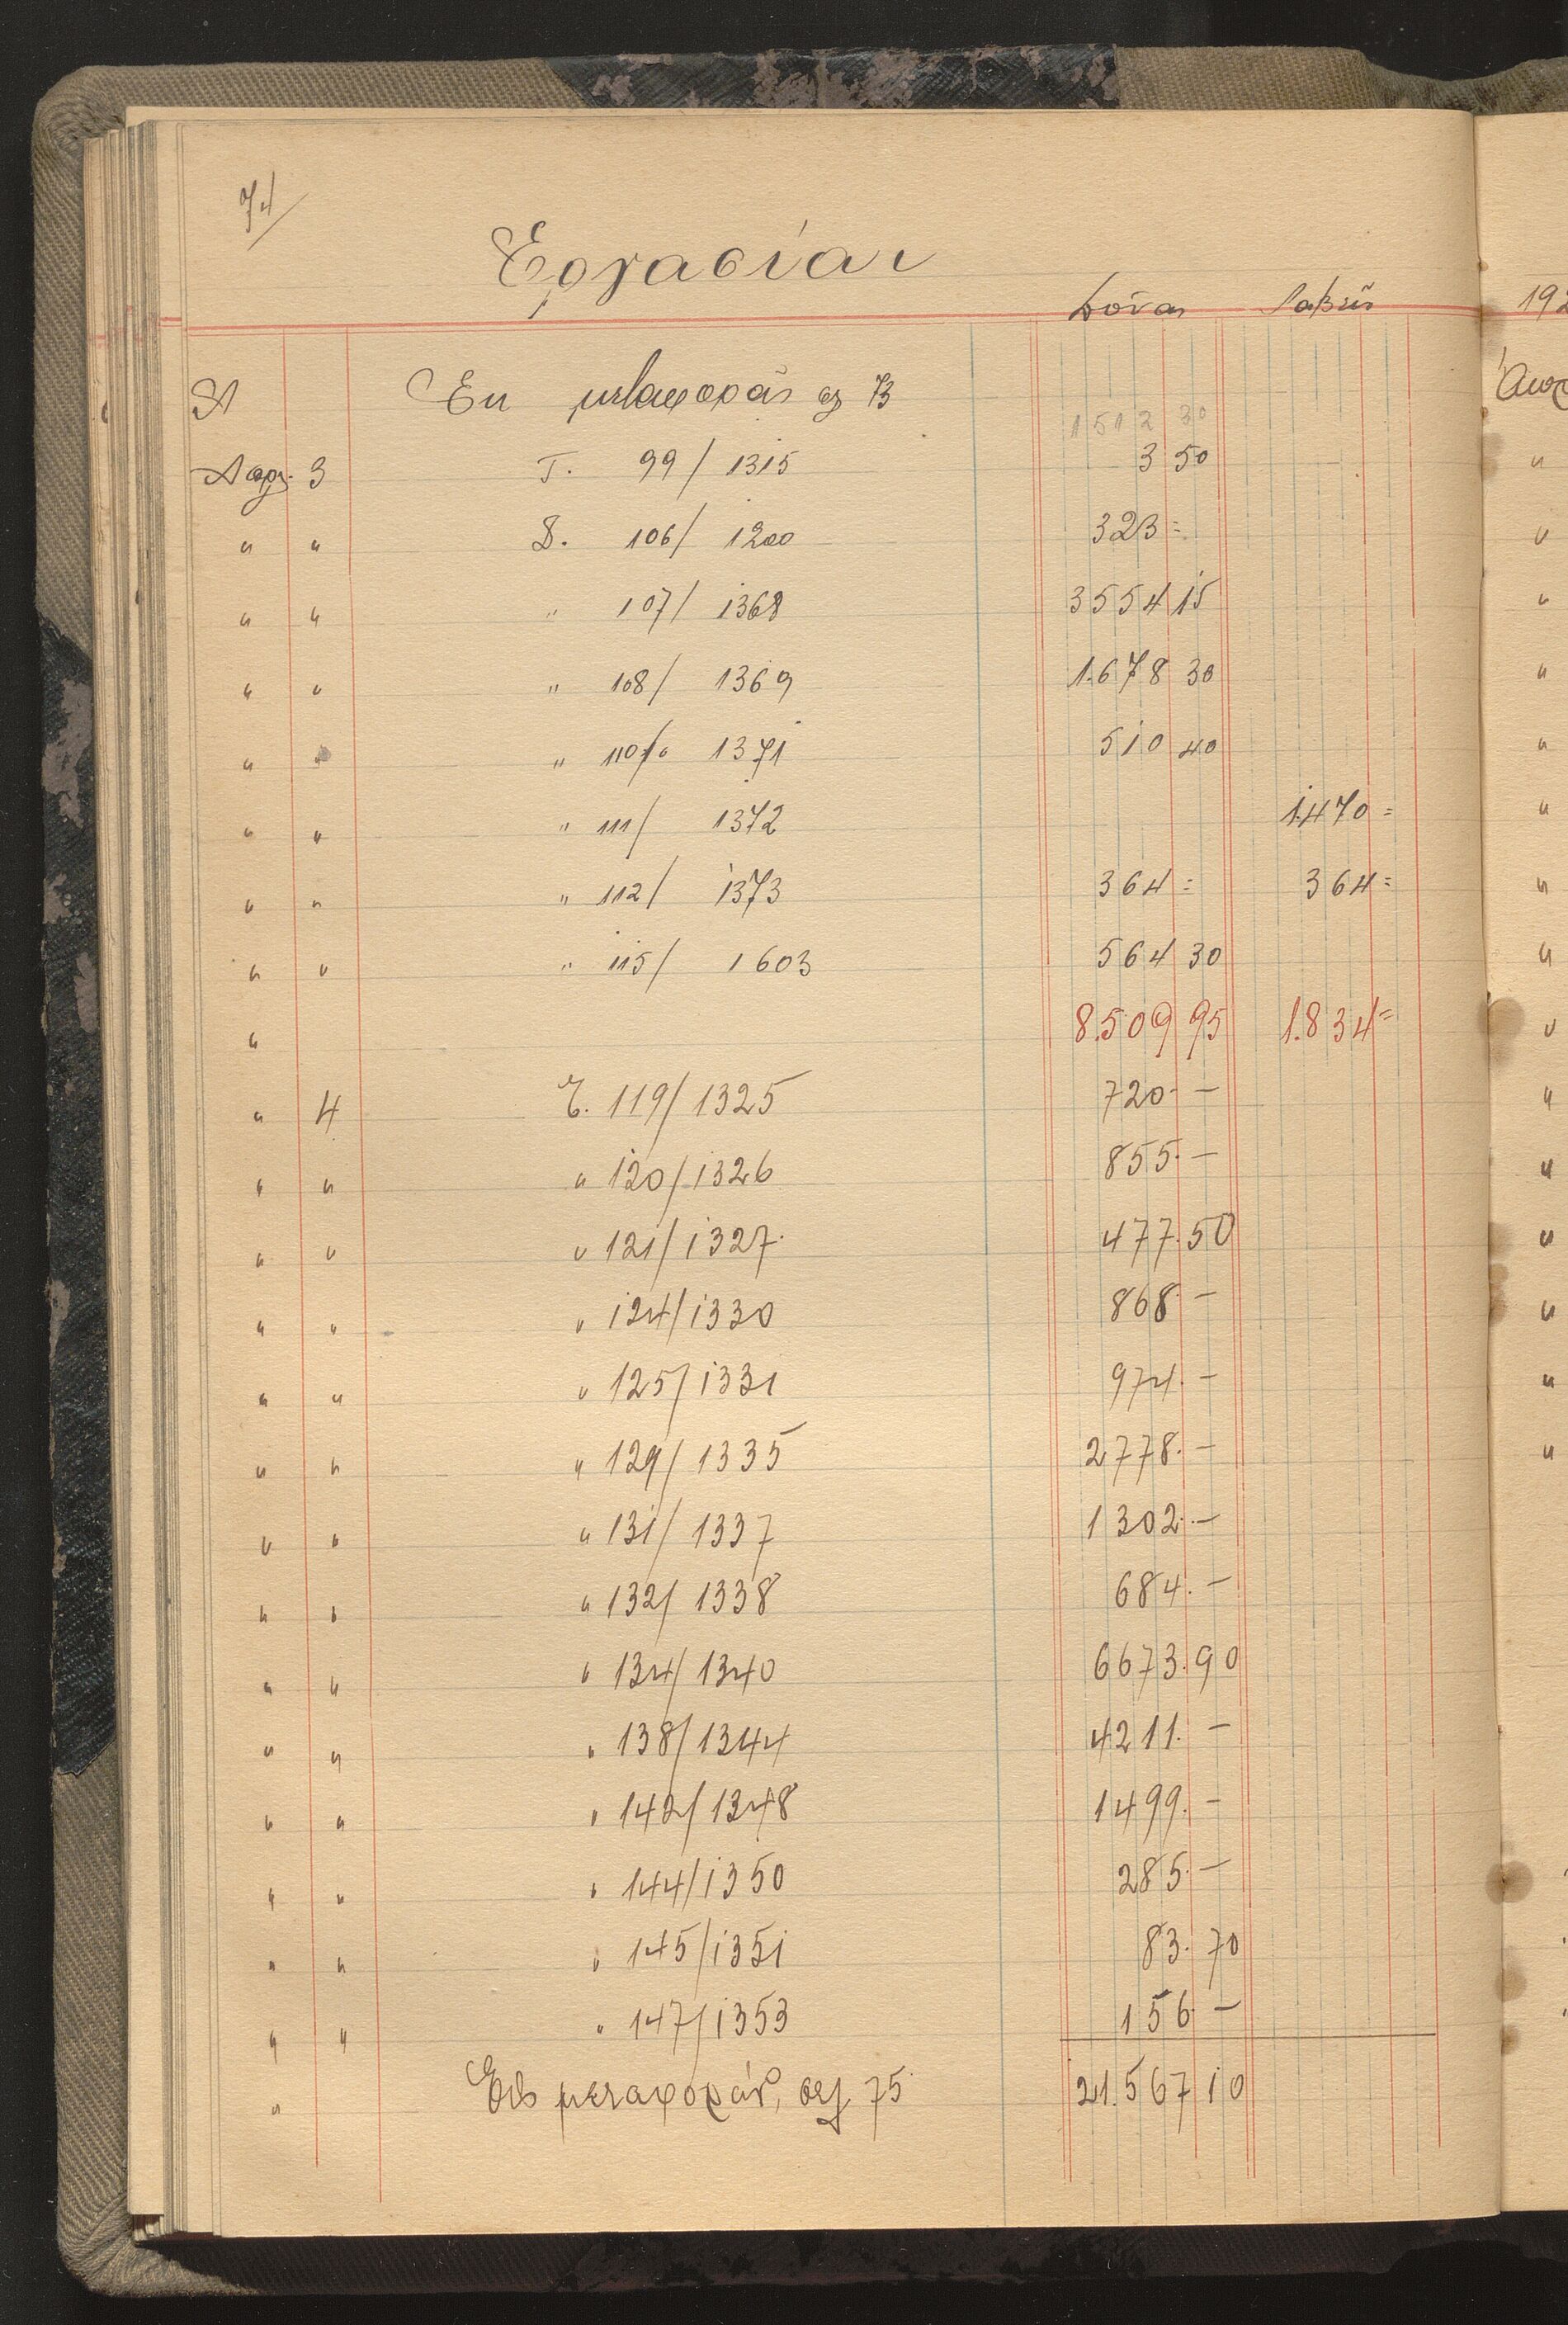 74/
Εργασίαι
Δούναι Λαβείν
Εκ μεταφοράς σελ 73 1512 30
3 T. 99/1315 3 50
" " D. 106/1200 323 =
" " " 107/1368 3554 15
" " " 108/1369 1.678 30
" " " 110/" 1371 510 40
" " " 111/1372 1.470 =
" " " 112/1373 364 = 364 =
" " " 115/1603 564 30
" 8.509 95 1.834 =
" 4 119/1325 720. —
" " " 120/1326 855. —
" " " 121/1327. 477.50
" " " 124/1330 868. —
" " " 125/1331 974. —
" " " 129/1335 2778. —
" " " 131/1337 1302. —
" " " 132/1338 684. —
" " " 134/1340 6673.90
" " " 138/1344 4211. —
" " " 142/1348 1499. —
" " " 144/1350 285. —
" " " 145/1351 83.70
" " " 147/1353 156 —
" Εις μεταφοράν, σελ 75 21.567 10
192
"
"
"
"
"
"
"
"
"
"
"
"
"
"
"